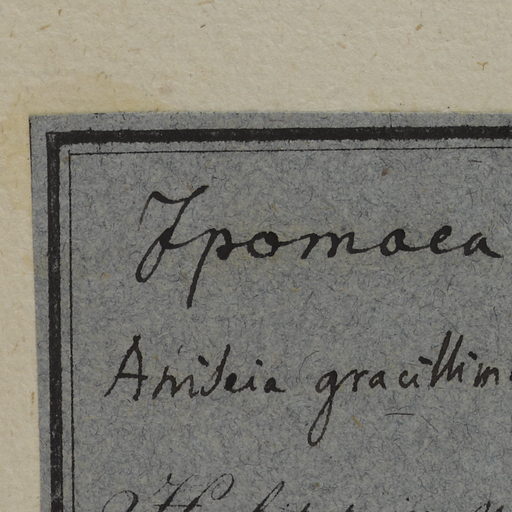 Ipomoea
Aniseia gracillim